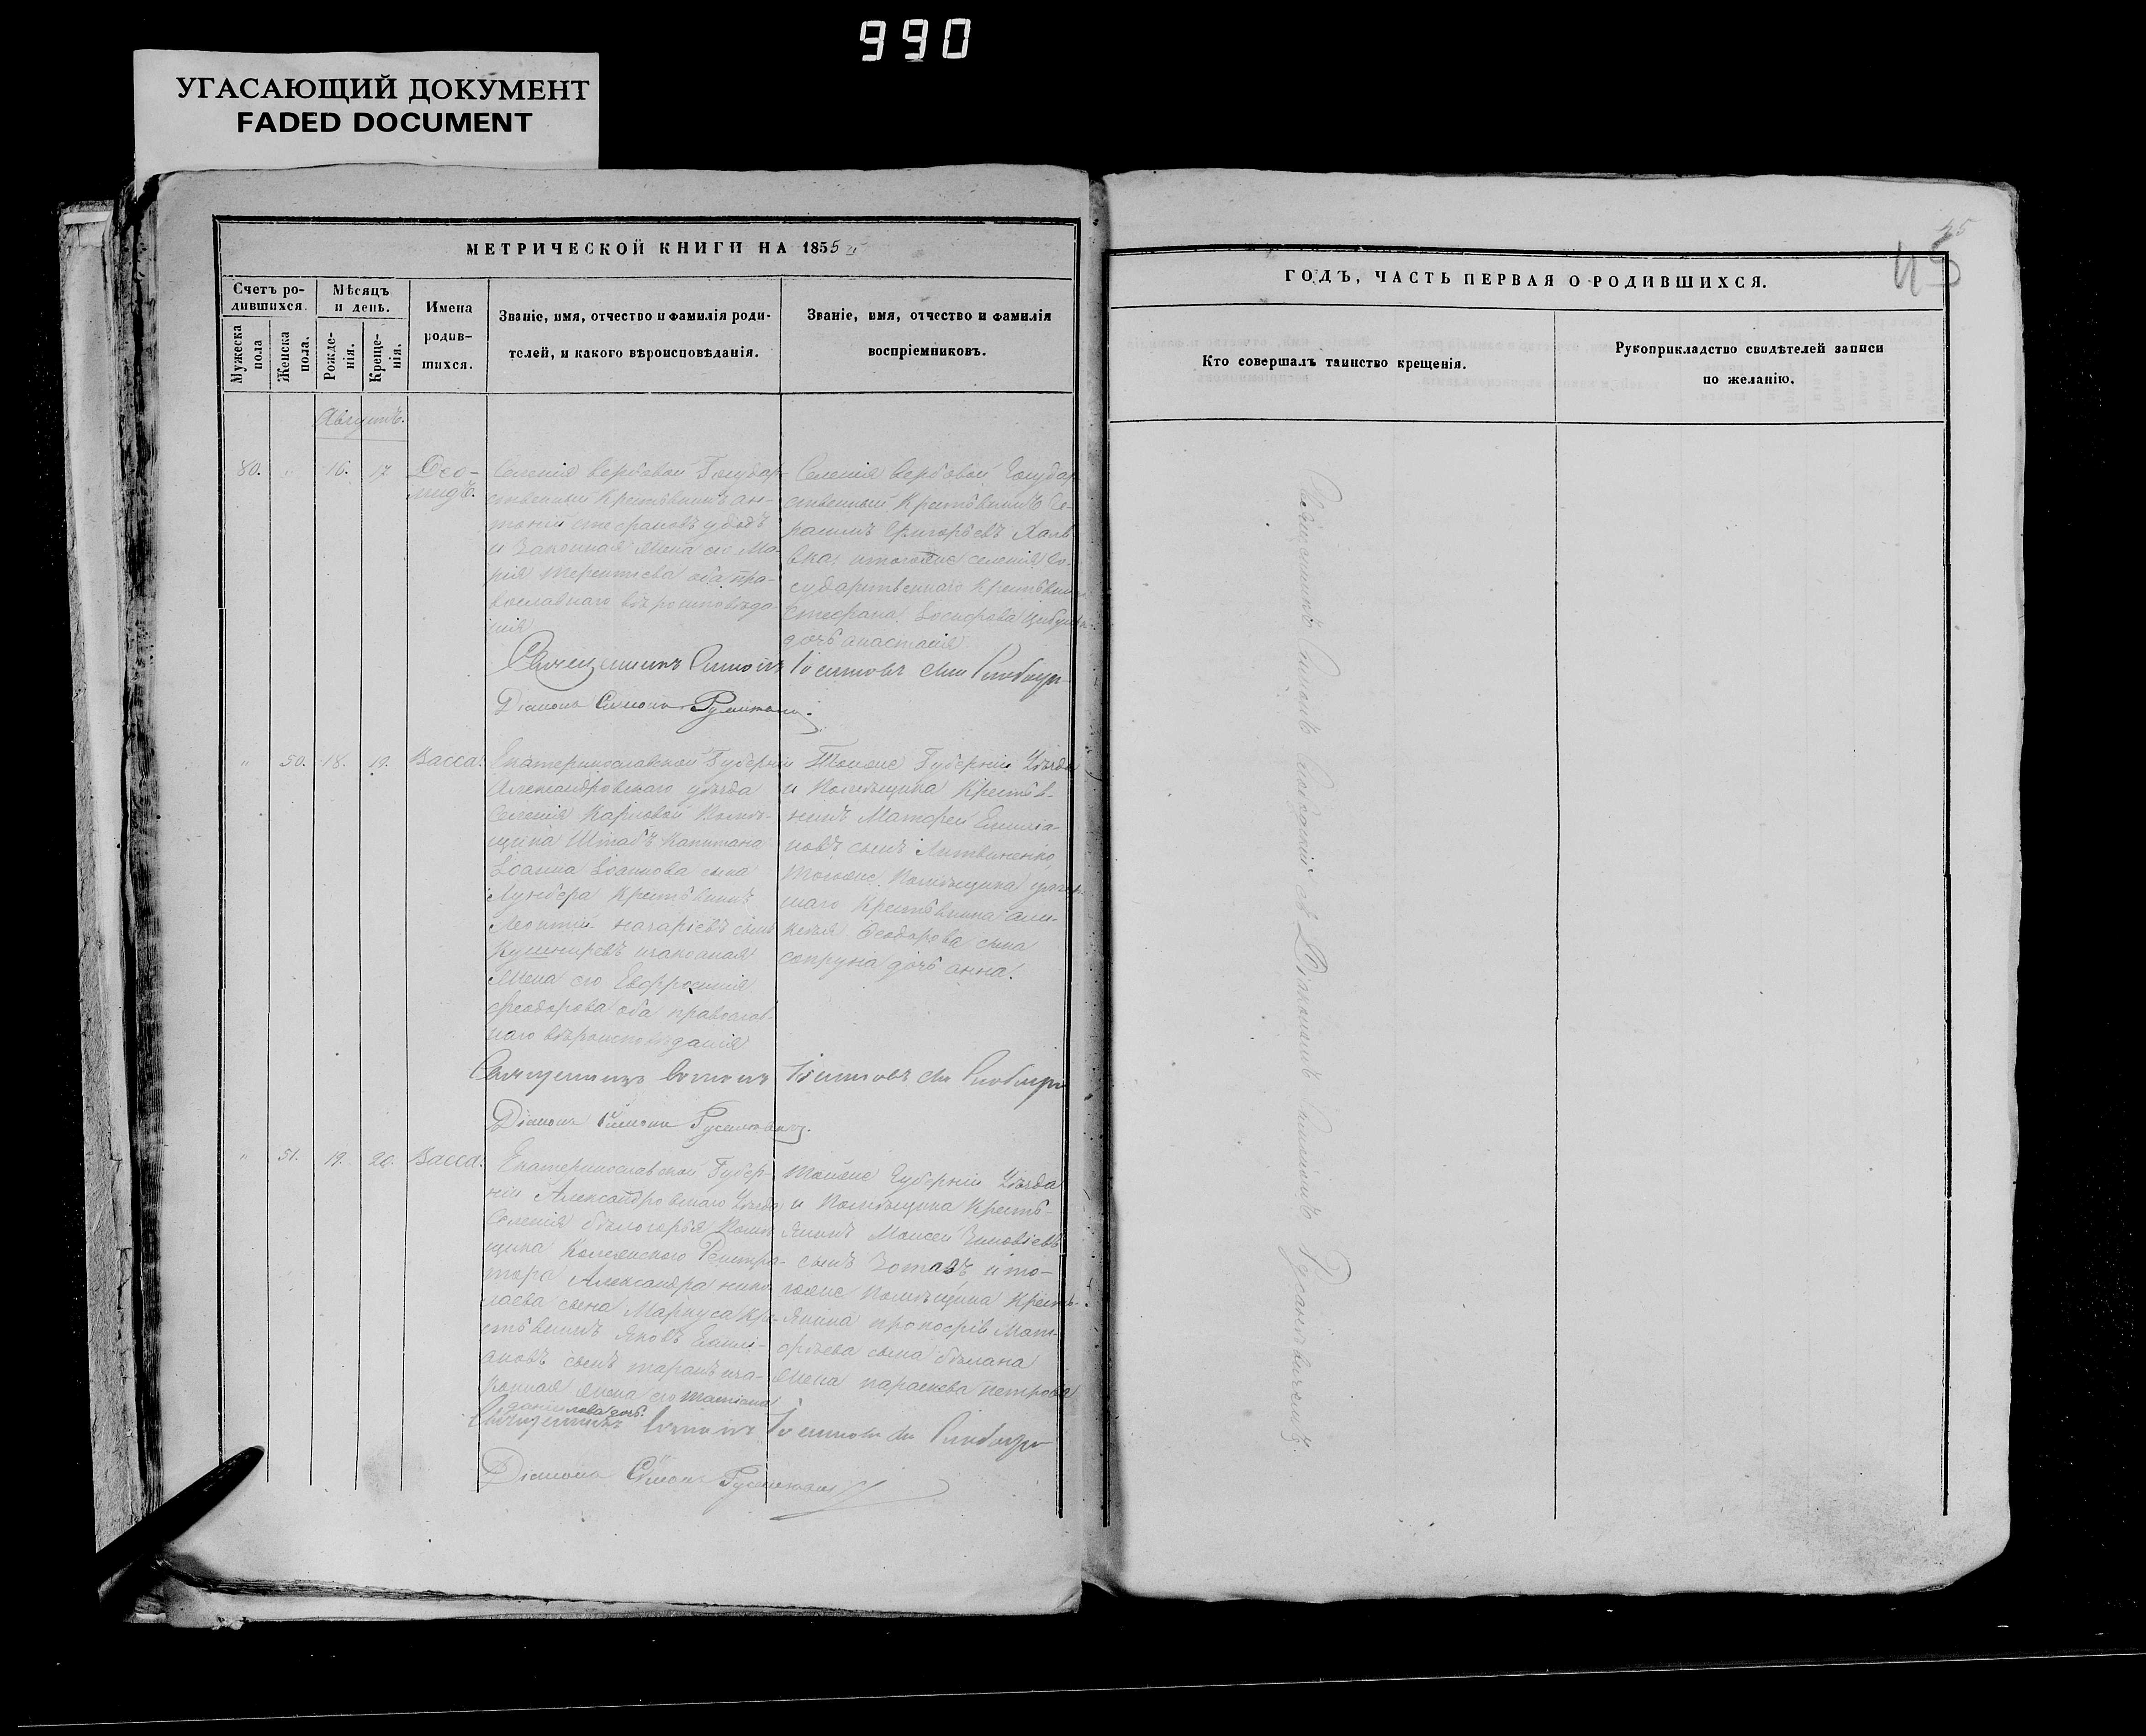 990
УГАСАЮЩИЙ ДОКУМЕНТ
FADED DOCUMENT
МЕТРИЧЕСКОЙ КНИГИ НА 1855
Счетъ ро-
дившихся.
Мужеска пола
Женска пола.
Мѣсяцъ
и день.
Рожде-
нія.
Креще-
нія.
Имена
родив-
шихся.
Званіе, имя, отчество и фамилія роди-
телей, и какого вѣроисповѣданія.
Званіе, имя, отчество и фамилія
воспріемниковъ.
Августъ.
80. " 16. 17
Дио-
мидъ.
Селенія Вербовой Государ-
ственный Крестьянинъ Ан-
тоній Стефановъ Удодъ
и Законная Жена его Ма-
рія Терентіева оба пра-
вославнаго вѣроисповѣда-
нія
Селенія Вербовой Государ
ственный Крестьянинъ Ге-
расимъ Григорьевъ
и тогоже селенія Го-
сударственнаго Крестьянина
Стефана Іосифова
дочь Анастасія
Священникъ Симонъ
Діаконъ Симонъ
" 50. 18. 19. Васса.
Екатеринославской Губерніи
Александровскаго уѣзда
Селенія Карповой Помѣ-
щика Штабъ Капитана
Іоанна Іоаннова сына
Крестьянинъ
Леонтій Назаріевъ сынъ
Кушниревъ и законная
Жена его Евфросинія
Феодорова оба православ-
наго вѣроисповѣданія
Тойже Губерніи Уѣзда
и Помѣщика Крестья-
нинъ Матфей Емилiа-
новъ сынъ Литвиненко,
Тогоже Помѣщика умер-
шаго Крестьянина
Феодорова сына
Сопруна дочь Анна.
Священникъ Симонъ
Діаконъ Симонъ
" 51. 19. 20. Васса.
Екатеринославской Губер-
ніи Александровскаго Уѣзда
Селенія Бѣлогорья Помѣ-
щика Колежскаго Регистра-
тора Александра Нико-
лаева сына Маркуса Кре-
стьянинъ Яковъ Емили-
ановъ сынъ Таранъ и за-
конная Жена его Татіана
Данилова дочь.
Тойже Губерніи Уѣзда
и Помѣщика Кресть-
янинъ Моисей Зиновіевъ
сынъ Зотовъ и то-
гоже Помѣщика Кресть-
янина Прокофія Мат-
фѣева сына Бѣлана
Жена Параскева Петрова
Священникъ Симонъ
Діаконъ Симонъ
45
45
ГОДЪ, ЧАСТЬ ПЕРВАЯ О РОДИВШИХСЯ.
Кто совершалъ таинство крещенія.
Рукоприкладство свидѣтелей записи
по желанію.
Священникъ Симонъ съ Діакономъ Симономъ